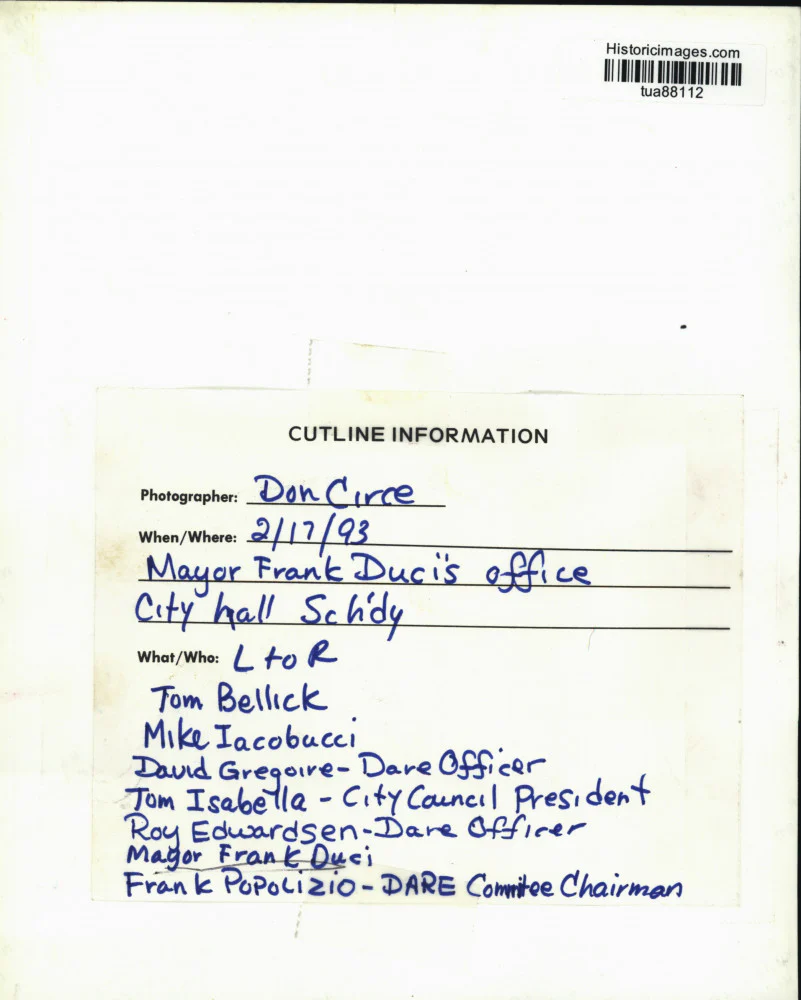 Historicimages.com
tua88112
CUTLINE INFORMATION
Photographer: Don Circe
When/Where: 2/17/93
Mayor Frank Duci's office
City hall Sch'dy
What/Who: L to R
Tom Bellick
Mike Iacobucci
David Gregoire - Dare Officer
Tom Isabella - City Council President
Roy Edwardsen - Dare Officer
Mayor Frank Duci
Frank Popolizio - DARE Commitee Chairman